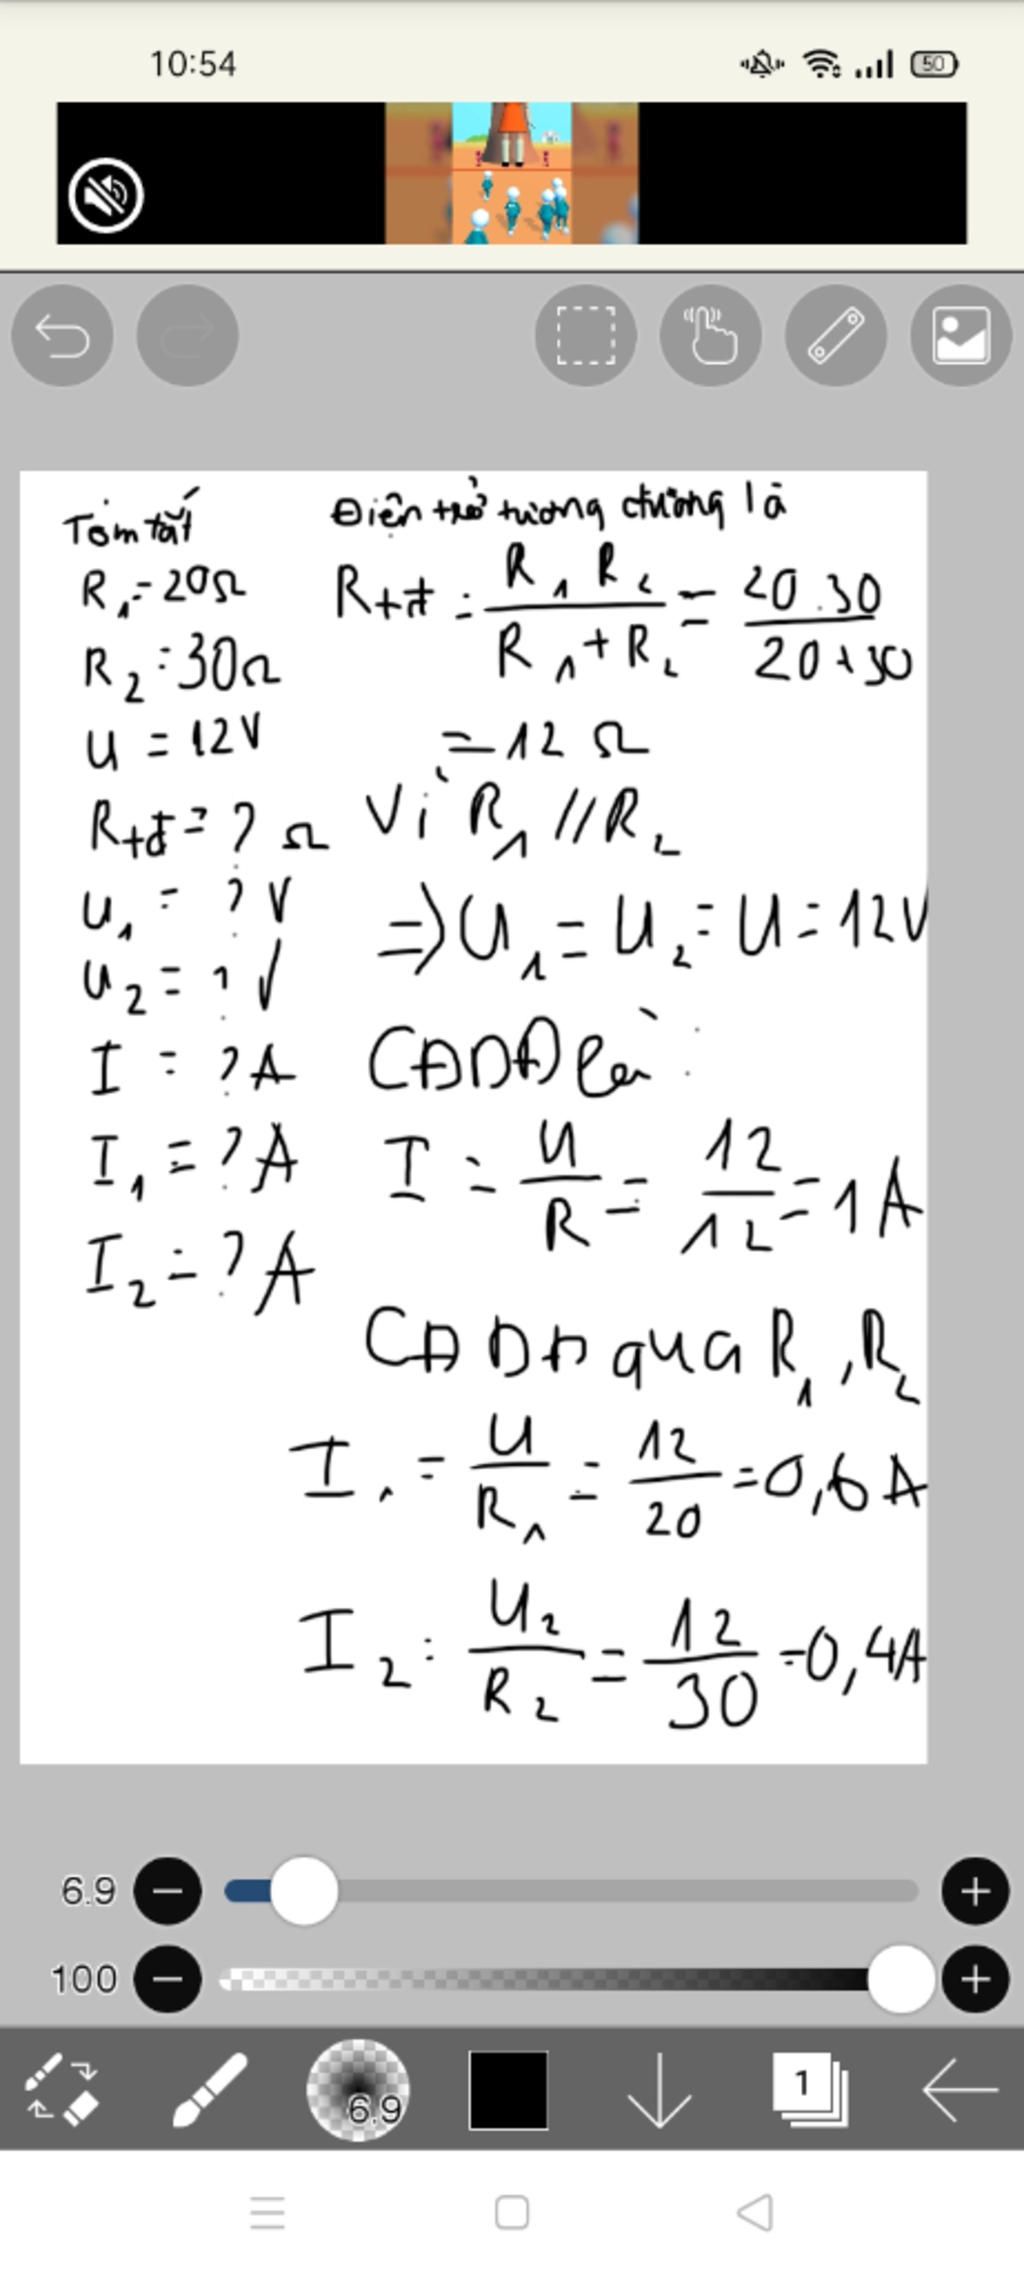 10:54
50
Tóm tắt
R₁ = 20Ω
R₂ = 30Ω
U = 12V
Rtđ = ? Ω
U₁ = ? V
U₂ = ? V
I = ? A
I₁ = ? A
I₂ = ? A
Điện trở tương đương là
Rtđ = R₁ R₂ / R₁ + R₂ = 20.30 / 20+30
= 12 Ω
Vì R₁ // R₂
⇒ U₁ = U₂ = U = 12V
CĐDĐ là :
I = U / R = 12 / 12 = 1 A
CĐDĐ qua R₁, R₂
I₁ = U / R₁ = 12 / 20 = 0,6 A
I₂ = U₂ / R₂ = 12 / 30 = 0,4A
6.9
100
6.9
1